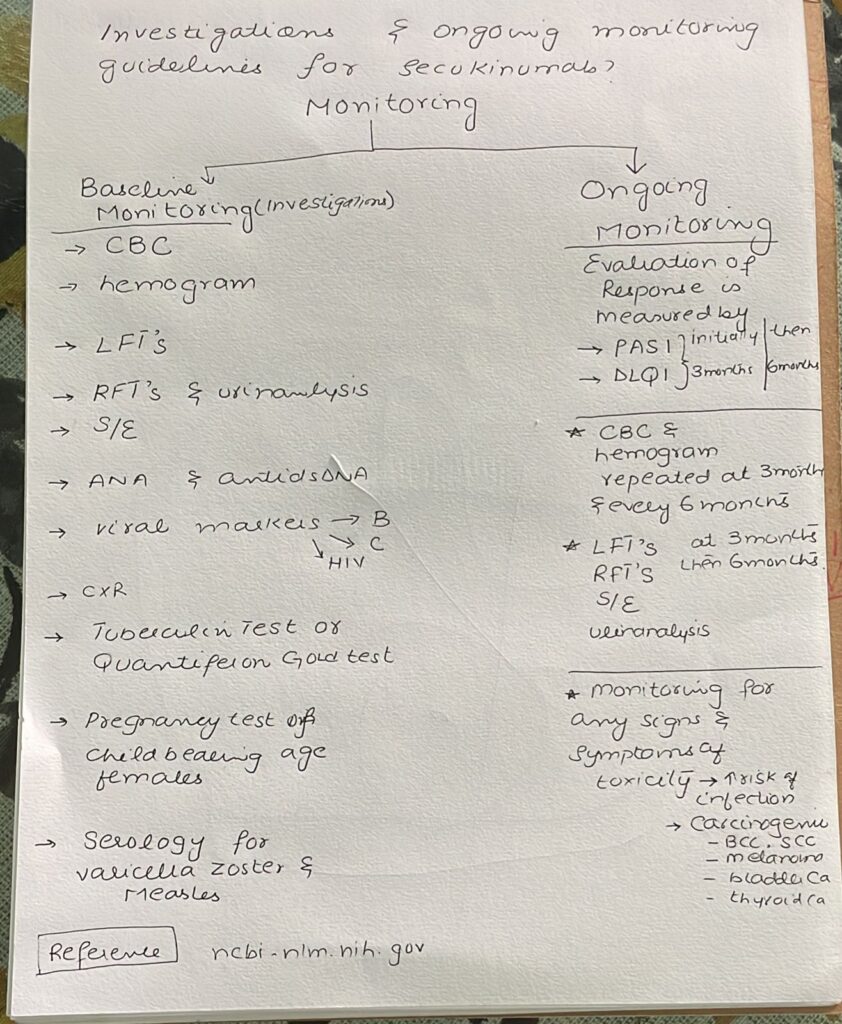 Investigations & ongoing monitoring
guidelines for secukinumab?
Monitoring
Baseline
Monitoring (Investigations)
→ CBC
→ hemogram
→ LFT's
→ RFT's & urinanlysis
→ S/E
→ ANA & antidsDNA
→ viral markers → B
C
HIV
→ CXR
→ Tuberculin Test or
Quantiferon Gold test
→ Pregnancy test of
childbearing age
females
→ Serology for
varicella zoster &
Measles
Ongoing
Monitoring
Evaluation of
Response is
measured by
→ PASI } initially | then
→ DLQI } 3 months | 6 months
* CBC &
hemogram
repeated at 3 month
& every 6 months
* LFT's at 3 months
RFT's then 6 months.
S/E
urinanalysis
* monitoring for
any signs &
symptoms of
toxicity → ↑ risk of
infection
→ Carcinogenic
- BCC. SCC
- melanoma
- bladder Ca
- thyroid Ca
Reference ncbi.nlm.nih.gov